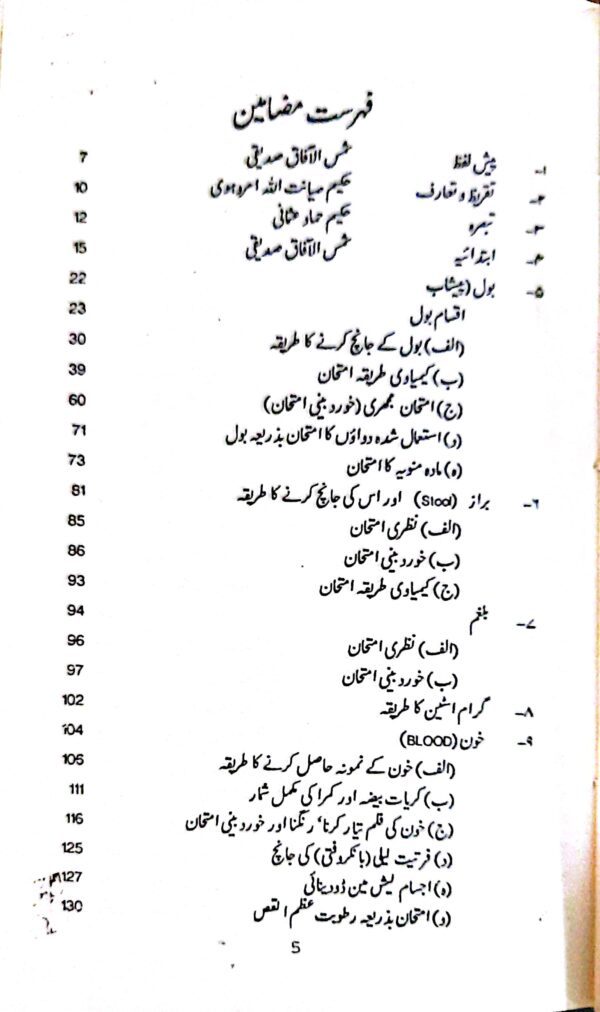 فہرست مضامین
۱- پیش لفظ شمس الآفاق صدیقی 7
۲- تقریظ و تعارف حکیم صیانت اللہ امروہوی 10
۳- تبصرہ حکیم حماد عثمانی 12
۴- ابتدائیہ شمس الآفاق صدیقی 15
۵- بول (پیشاب 22
اقسام بول 23
(الف) بول کے جانچ کرنے کا طریقہ 30
(ب) کیمیاوی طریقہ امتحان 39
(ج) امتحان مجہری (خورد بینی امتحان) 60
(د) استعمال شدہ دواؤں کا امتحان بذریعہ بول 71
(ہ) مادہ منویہ کا امتحان 73
۶- براز (Stool) اور اس کی جانچ کرنے کا طریقہ 81
(الف) نظری امتحان 85
(ب) خورد بینی امتحان 86
(ج) کیمیاوی طریقہ امتحان 93
۷- بلغم 94
(الف) نظری امتحان 96
(ب) خورد بینی امتحان 97
۸- گرام اسٹین کا طریقہ 102
۹- خون (BLOOD) 104
(الف) خون کے نمونہ حاصل کرنے کا طریقہ 106
(ب) کریات بیضہ اور کمرا کی مکمل شمار 111
(ج) خون کی فلم تیار کرنا، رنگنا اور خورد بینی امتحان 116
(د) فرتیت لیلی (بانکروفتی) کی جانچ 125
(ہ) اجسام لیش مین ڈوینائی 127
(و) امتحان بذریعہ رطوبت عظم القص 130
5